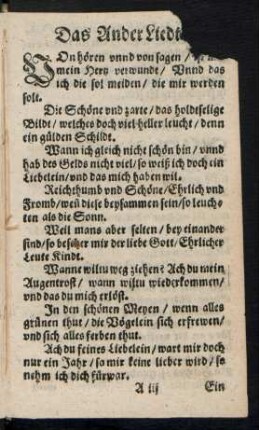 Das Ander Liedt
VOn hören vnnd von sagen / ist
mein Hertz verwundt / Vnnd das
ich die sol meiden / die mir werden
solt.
Die Schöne vnd zarte / das holdtselige
Bildt / welches doch viel heller leucht / denn
ein gülden Schildt.
Wann ich gleich nicht schön bin / vnnd
hab des Gelds nicht viel / so weiß ich doch ein
Liebelein / vnd das mich haben wil.
Reichthumb vnd Schöne / Ehrlich vnd
Fromb / weñ diese beysammen sein / so leuch-
ten als die Sonn.
Weil mans aber selten / bey einander
find / so bescher mir der liebe Gott / Ehrlicher
Leute Kindt.
Wanne wiltu weg ziehen? Ach du mein
Augentrost / wann wiltu wiederkommen /
vnd das du mich erlöst.
In den schönen Meyen / wenn alles
grünen thut / die Vögelein sich erfrewen /
vnd sich alles ferben thut.
Ach du feines Liebelein / wart mir doch
nur ein Jahr / so mir keine lieber wird / so
nehm ich dich fürwar.
A iij Ein